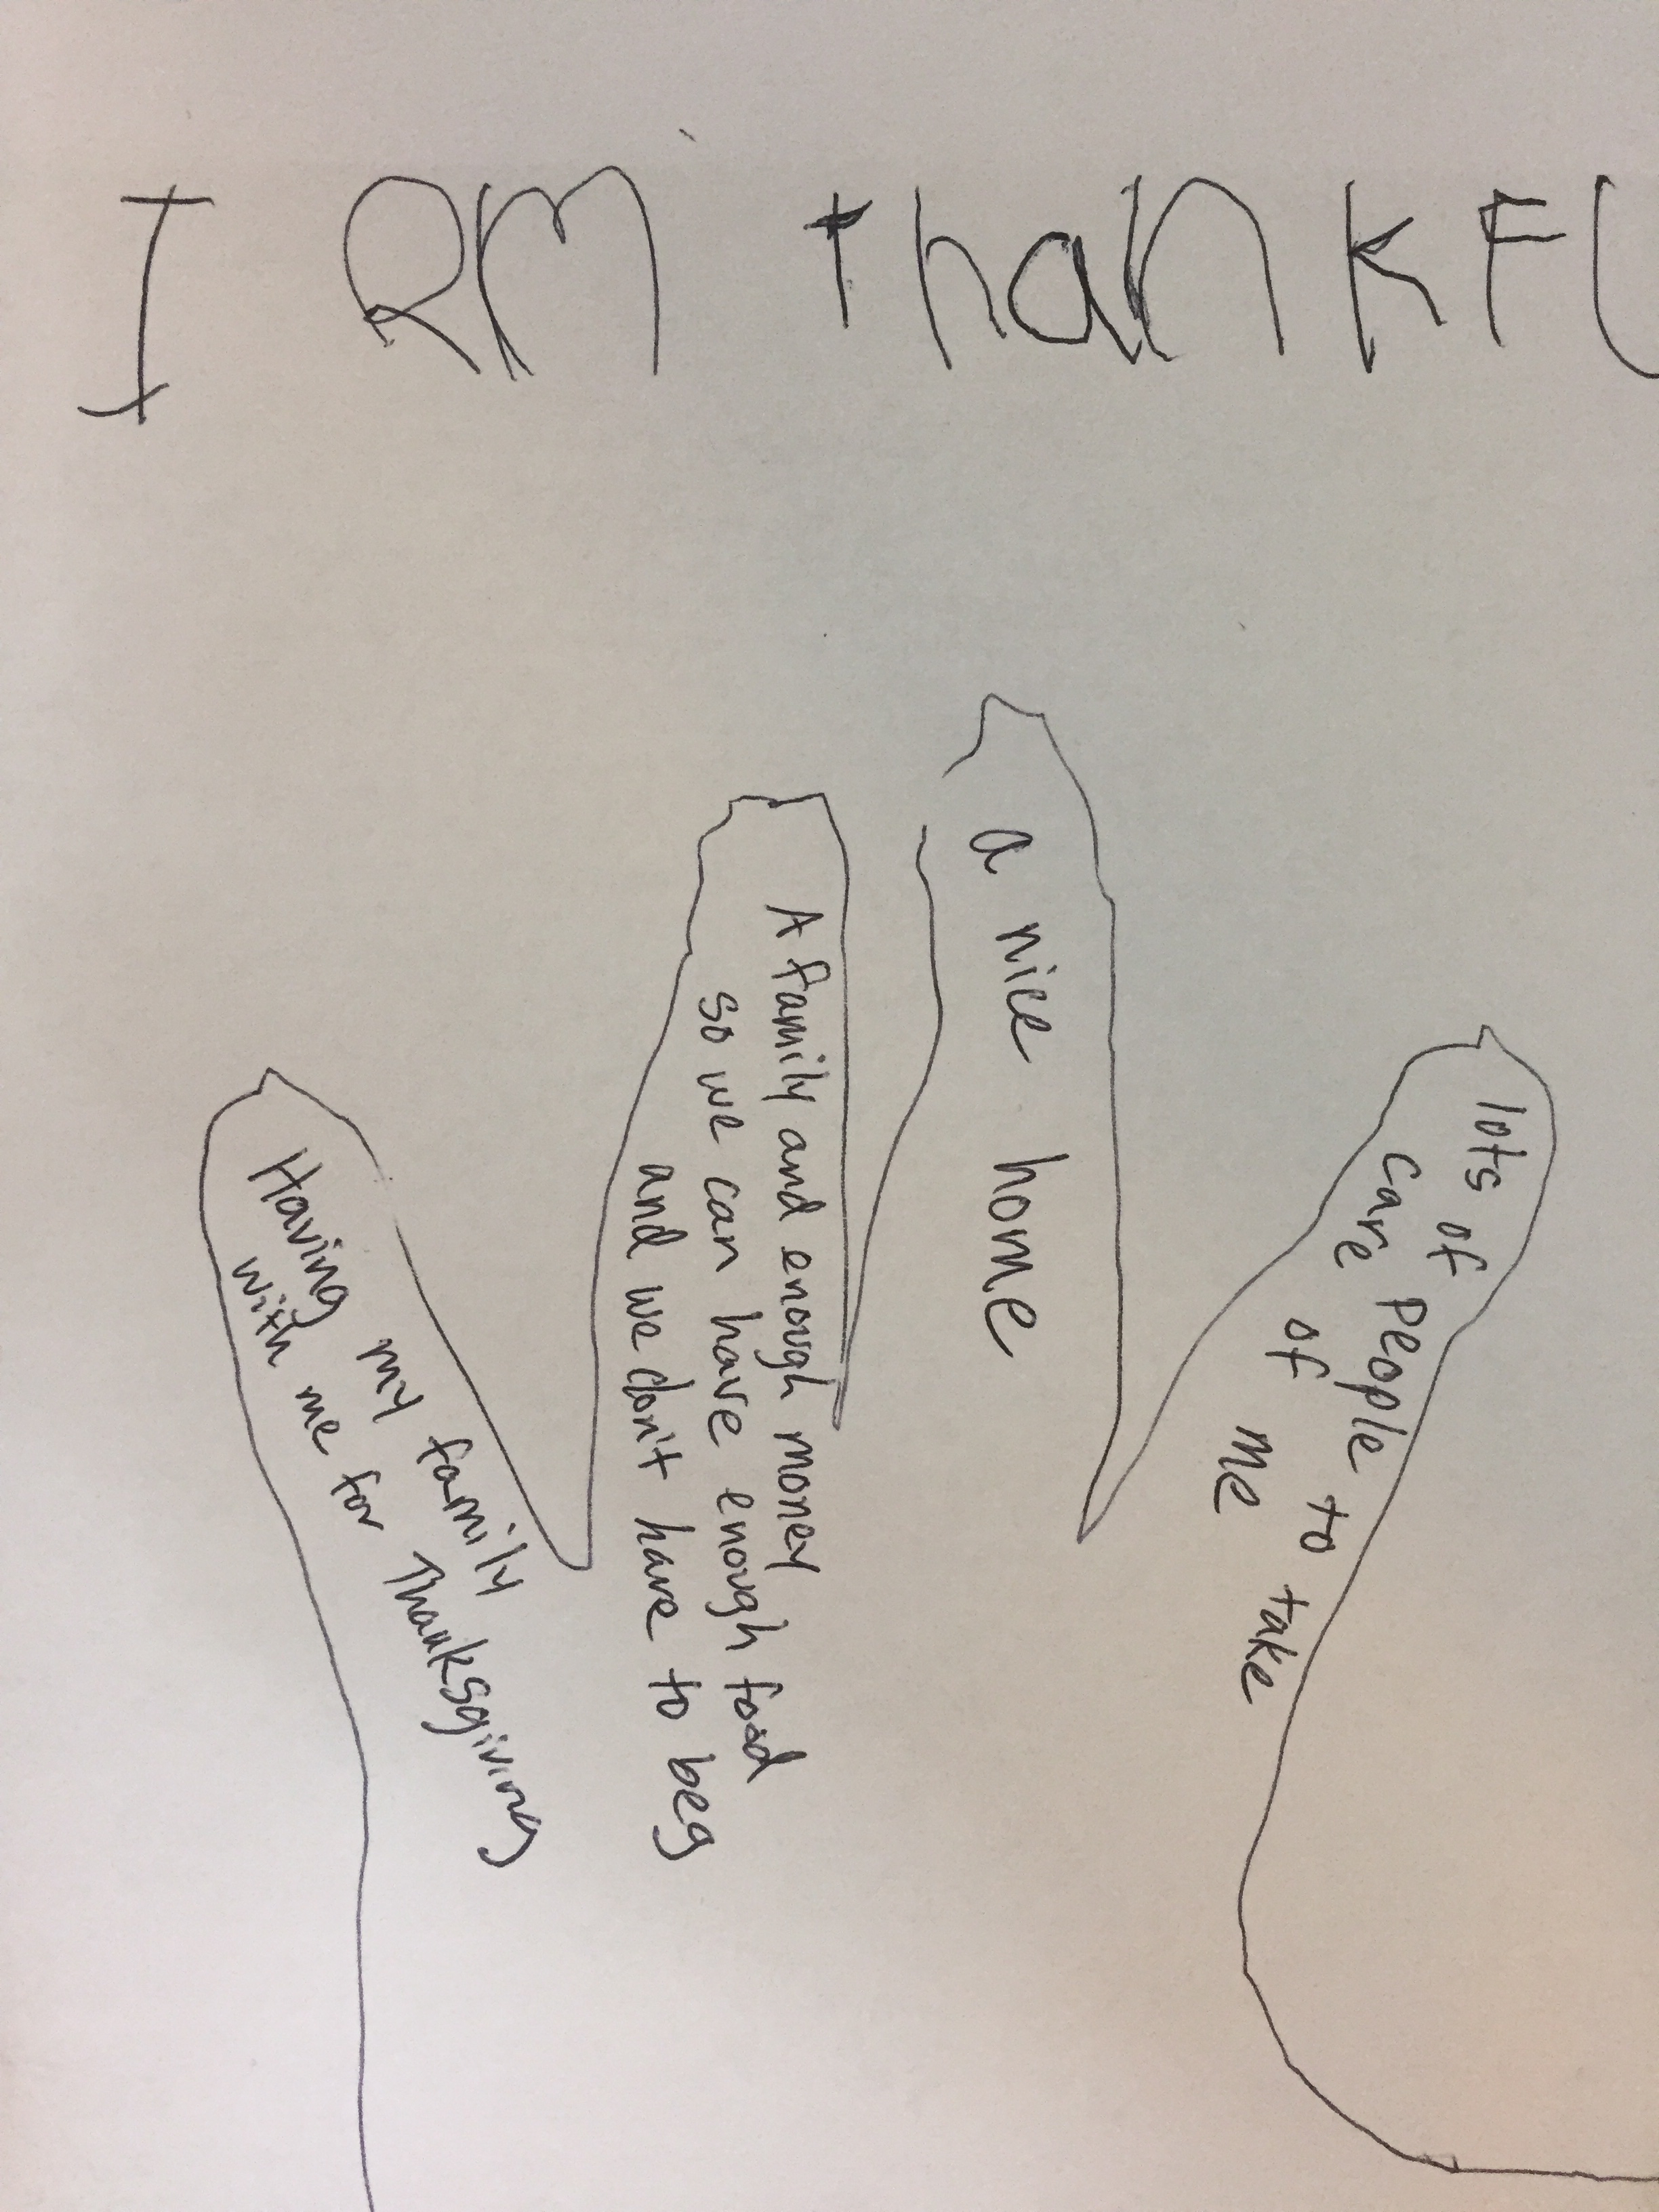 I am thankFU
Having my family
with me for Thanksgiving
A family and enough money
so we can have enough food
and we don't have to beg
a nice home
lots of people to take
care of me